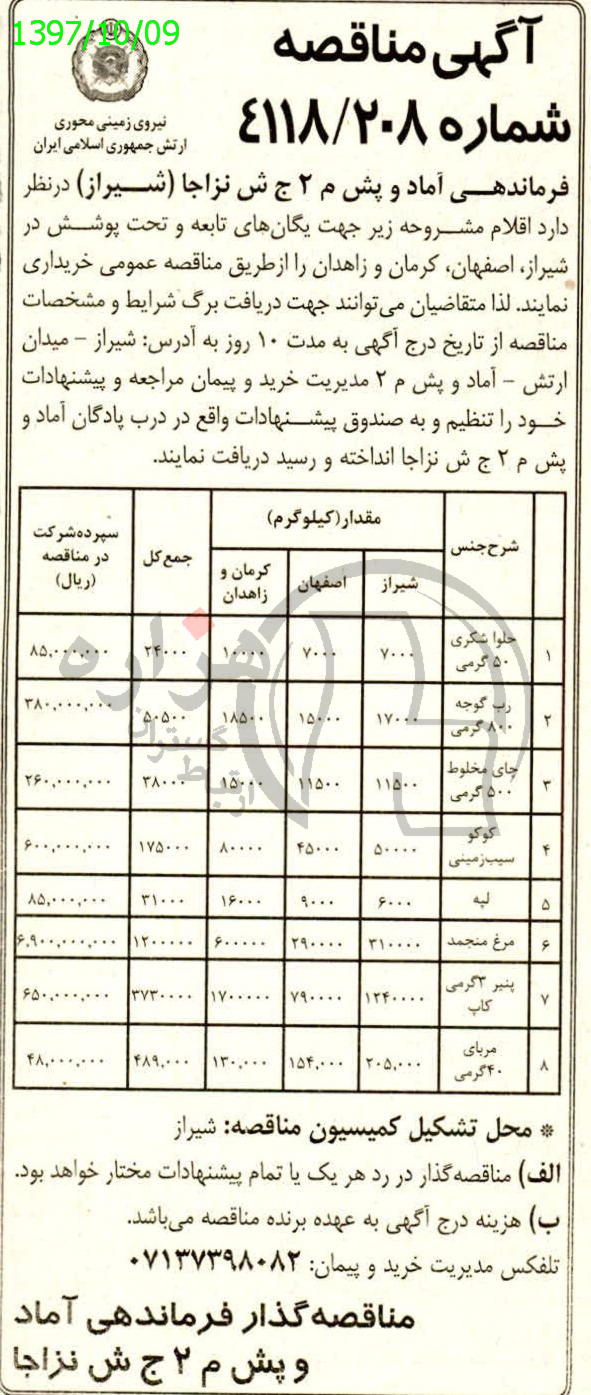 1397/10/09
آگهی مناقصه
شماره ٤١١٨/٢٠٨
نیروی زمینی محوری
ارتش جمهوری اسلامی ایران
فرماندهی آماد و پش م ۲ ج ش نزاجا (شیراز) درنظر
دارد اقلام مشروحه زیر جهت یگان‌های تابعه و تحت پوشش در
شیراز، اصفهان، کرمان و زاهدان را ازطریق مناقصه عمومی خریداری
نمایند. لذا متقاضیان می‌توانند جهت دریافت برگ شرایط و مشخصات
مناقصه از تاریخ درج آگهی به مدت ۱۰ روز به آدرس: شیراز – میدان
ارتش – آماد و پش م ۲ مدیریت خرید و پیمان مراجعه و پیشنهادات
خود را تنظیم و به صندوق پیشنهادات واقع در درب پادگان آماد و
پش م ۲ ج ش نزاجا انداخته و رسید دریافت نمایند.
شرح‌جنس مقدار(کیلوگرم) جمع‌کل سپرده‌شرکت در مناقصه (ریال)
شیراز اصفهان کرمان و زاهدان
۱ حلوا شکری ۵۰ گرمی ۷۰۰۰ ۷۰۰۰ ۱۰۰۰۰ ۲۴۰۰۰ ۸۵,۰۰۰,۰۰۰
۲ رب گوجه ۸۰۰ گرمی ۱۷۰۰۰ ۱۵۰۰۰ ۱۸۵۰۰ ۵۰۵۰۰ ۳۸۰,۰۰۰,۰۰۰
۳ چای مخلوط ۵۰۰ گرمی ۱۱۵۰۰ ۱۱۵۰۰ ۱۵۰۰۰ ۳۸۰۰۰ ۲۶۰,۰۰۰,۰۰۰
۴ کوکو سیب‌زمینی ۵۰۰۰۰ ۴۵۰۰۰ ۸۰۰۰۰ ۱۷۵۰۰۰ ۶۰۰,۰۰۰,۰۰۰
۵ لپه ۶۰۰۰ ۹۰۰۰ ۱۶۰۰۰ ۳۱۰۰۰ ۸۵,۰۰۰,۰۰۰
۶ مرغ منجمد ۳۱۰۰۰۰ ۲۹۰۰۰۰ ۶۰۰۰۰۰ ۱۲۰۰۰۰۰ ۶,۹۰۰,۰۰۰,۰۰۰
۷ پنیر ۳گرمی کاپ ۱۲۴۰۰۰۰ ۷۹۰۰۰۰ ۱۷۰۰۰۰۰ ۳۷۳۰۰۰۰ ۶۵۰,۰۰۰,۰۰۰
۸ مربای ۴۰گرمی ۲۰۵,۰۰۰ ۱۵۴,۰۰۰ ۱۳۰,۰۰۰ ۴۸۹,۰۰۰ ۴۸,۰۰۰,۰۰۰
هزاره
گستران
ارتباط
* محل تشکیل کمیسیون مناقصه: شیراز
الف) مناقصه‌گذار در رد هر یک یا تمام پیشنهادات مختار خواهد بود.
ب) هزینه درج آگهی به عهده برنده مناقصه می‌باشد.
تلفکس مدیریت خرید و پیمان: ۰۷۱۳۷۳۹۸۰۸۲
مناقصه‌گذار فرماندهی آماد
و پش م ۲ ج ش نزاجا